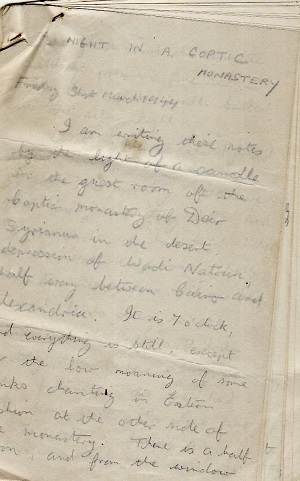 A NIGHT IN A COPTIC
MONASTERY
Friday 31st March 1944
I am writing these notes
by the light of a candle
in the guest room off the
Coptic monastery of Deir
Syrianus in the desert
depression of Wadi Natrun
half way between Cairo and
Alexandria. It is 7 o'clock,
and everything is still, except
the low moaning of some
monks chanting in Eastern
fashion at the other side of
the monastery. There is a half
moon, and from the window